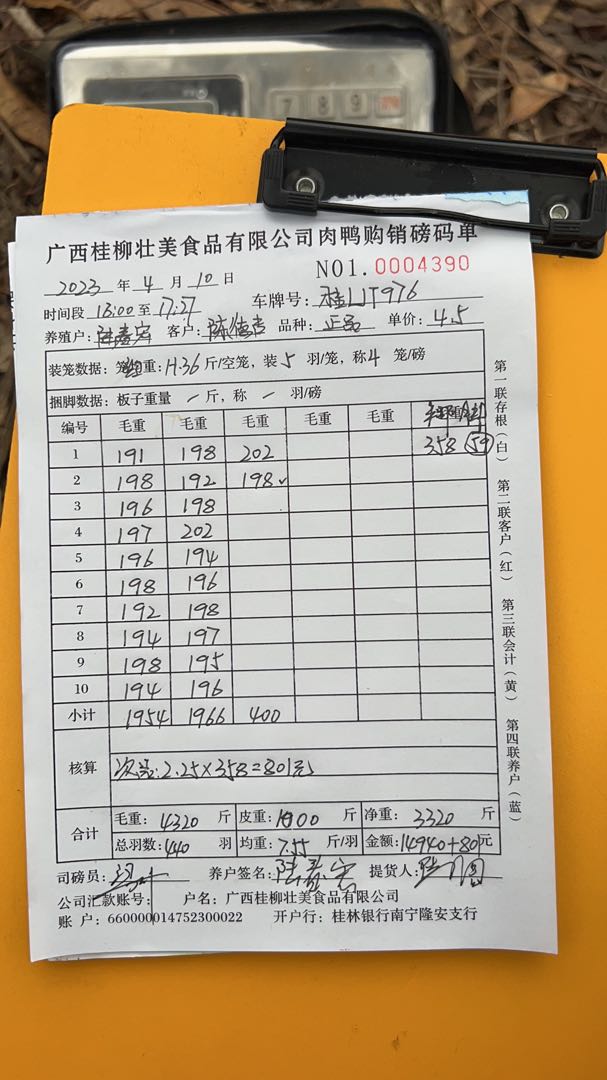 7 8 9
广西桂柳壮美食品有限公司肉鸭购销磅码单
2023 年 4 月 10 日 NO1. 0004390
时间段 16:00 至 17:37 车牌号: 桂JJT976
养殖户: 客户: 陈德吉 品种: 正品 单价: 4.5
装笼数据: 重: 11.36 斤/空笼, 装 5 羽/笼, 称 4 笼/磅
捆脚数据: 板子重量 — 斤, 称 — 羽/磅
编号 毛重 毛重 毛重 毛重 毛重
1 191 198 202 358 59
2 198 192 198✓
3 196 198
4 197 202
5 196 194
6 198 196
7 192 198
8 194 197
9 198 195
10 194 196
小计 1954 1966 400
核算 次品: 2.25×358=801元
合计 毛重: 4320 斤 皮重: 1000 斤 净重: 3320 斤
总羽数: 440 羽 均重: 7.55 斤/羽 金额: 14940+801元
司磅员: 养户签名: 提货人:
公司汇款账号: 户名: 广西桂柳壮美食品有限公司
账 户: 660000014752300022 开户行: 桂林银行南宁隆安支行
第一联存根(白) 第二联客户(红) 第三联会计(黄) 第四联养户(蓝)